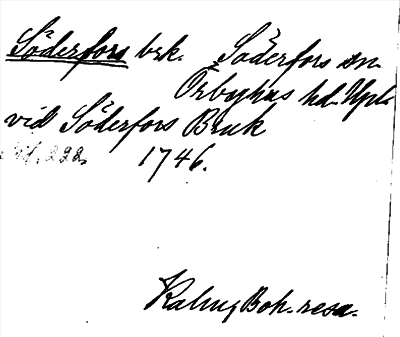 Söderfors brk. Söderfors sn
Örbyhus hd. Upl.
vid Söderfors Bruk
s. 222. 1746.
Kalm, Boh. resa.